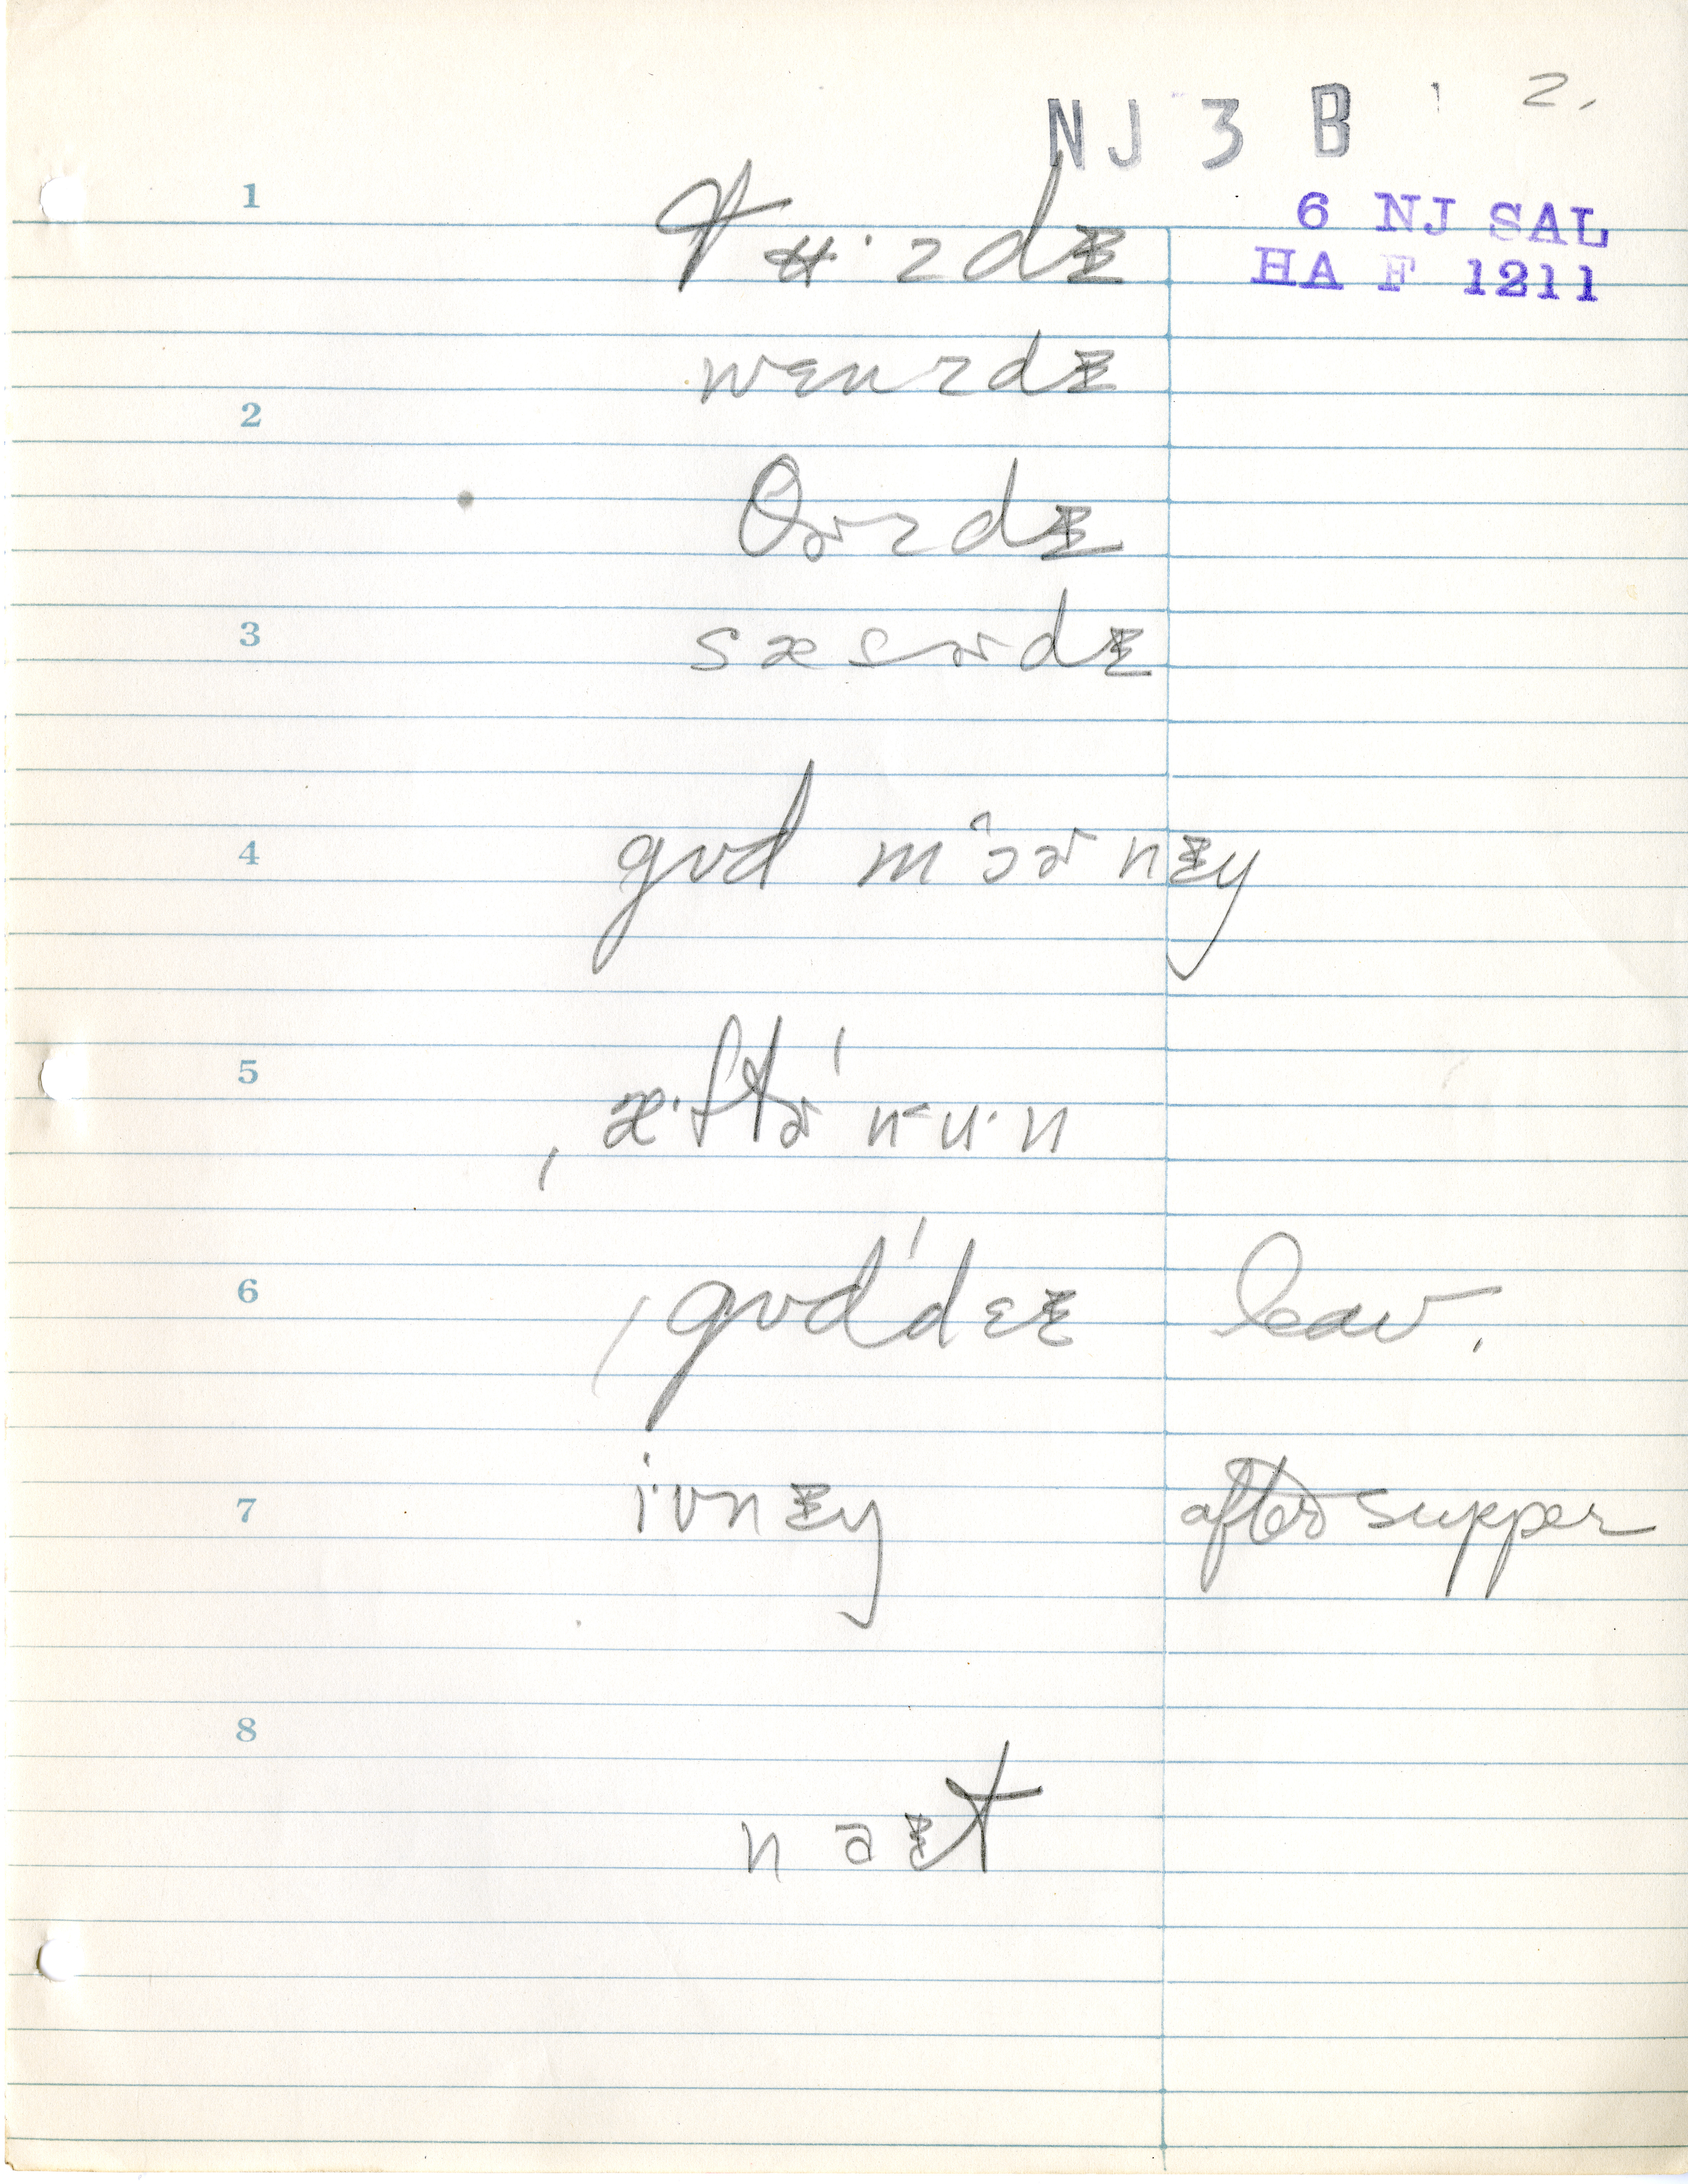 NJ 3 B 2.
6 NJ SAL
HA F 1211
1
tʉ·zdɪ
wɛnzdɪ
2
θɚzdɪ
3
sæsɚdɪ
4
gʊd mɔ̂ɚnɪŋ
5
ˌæ·ftɚˈnu·n
6
ˌgʊdˈdɛɪ leav.
7
i·vnɪŋ after supper
8
naɪt